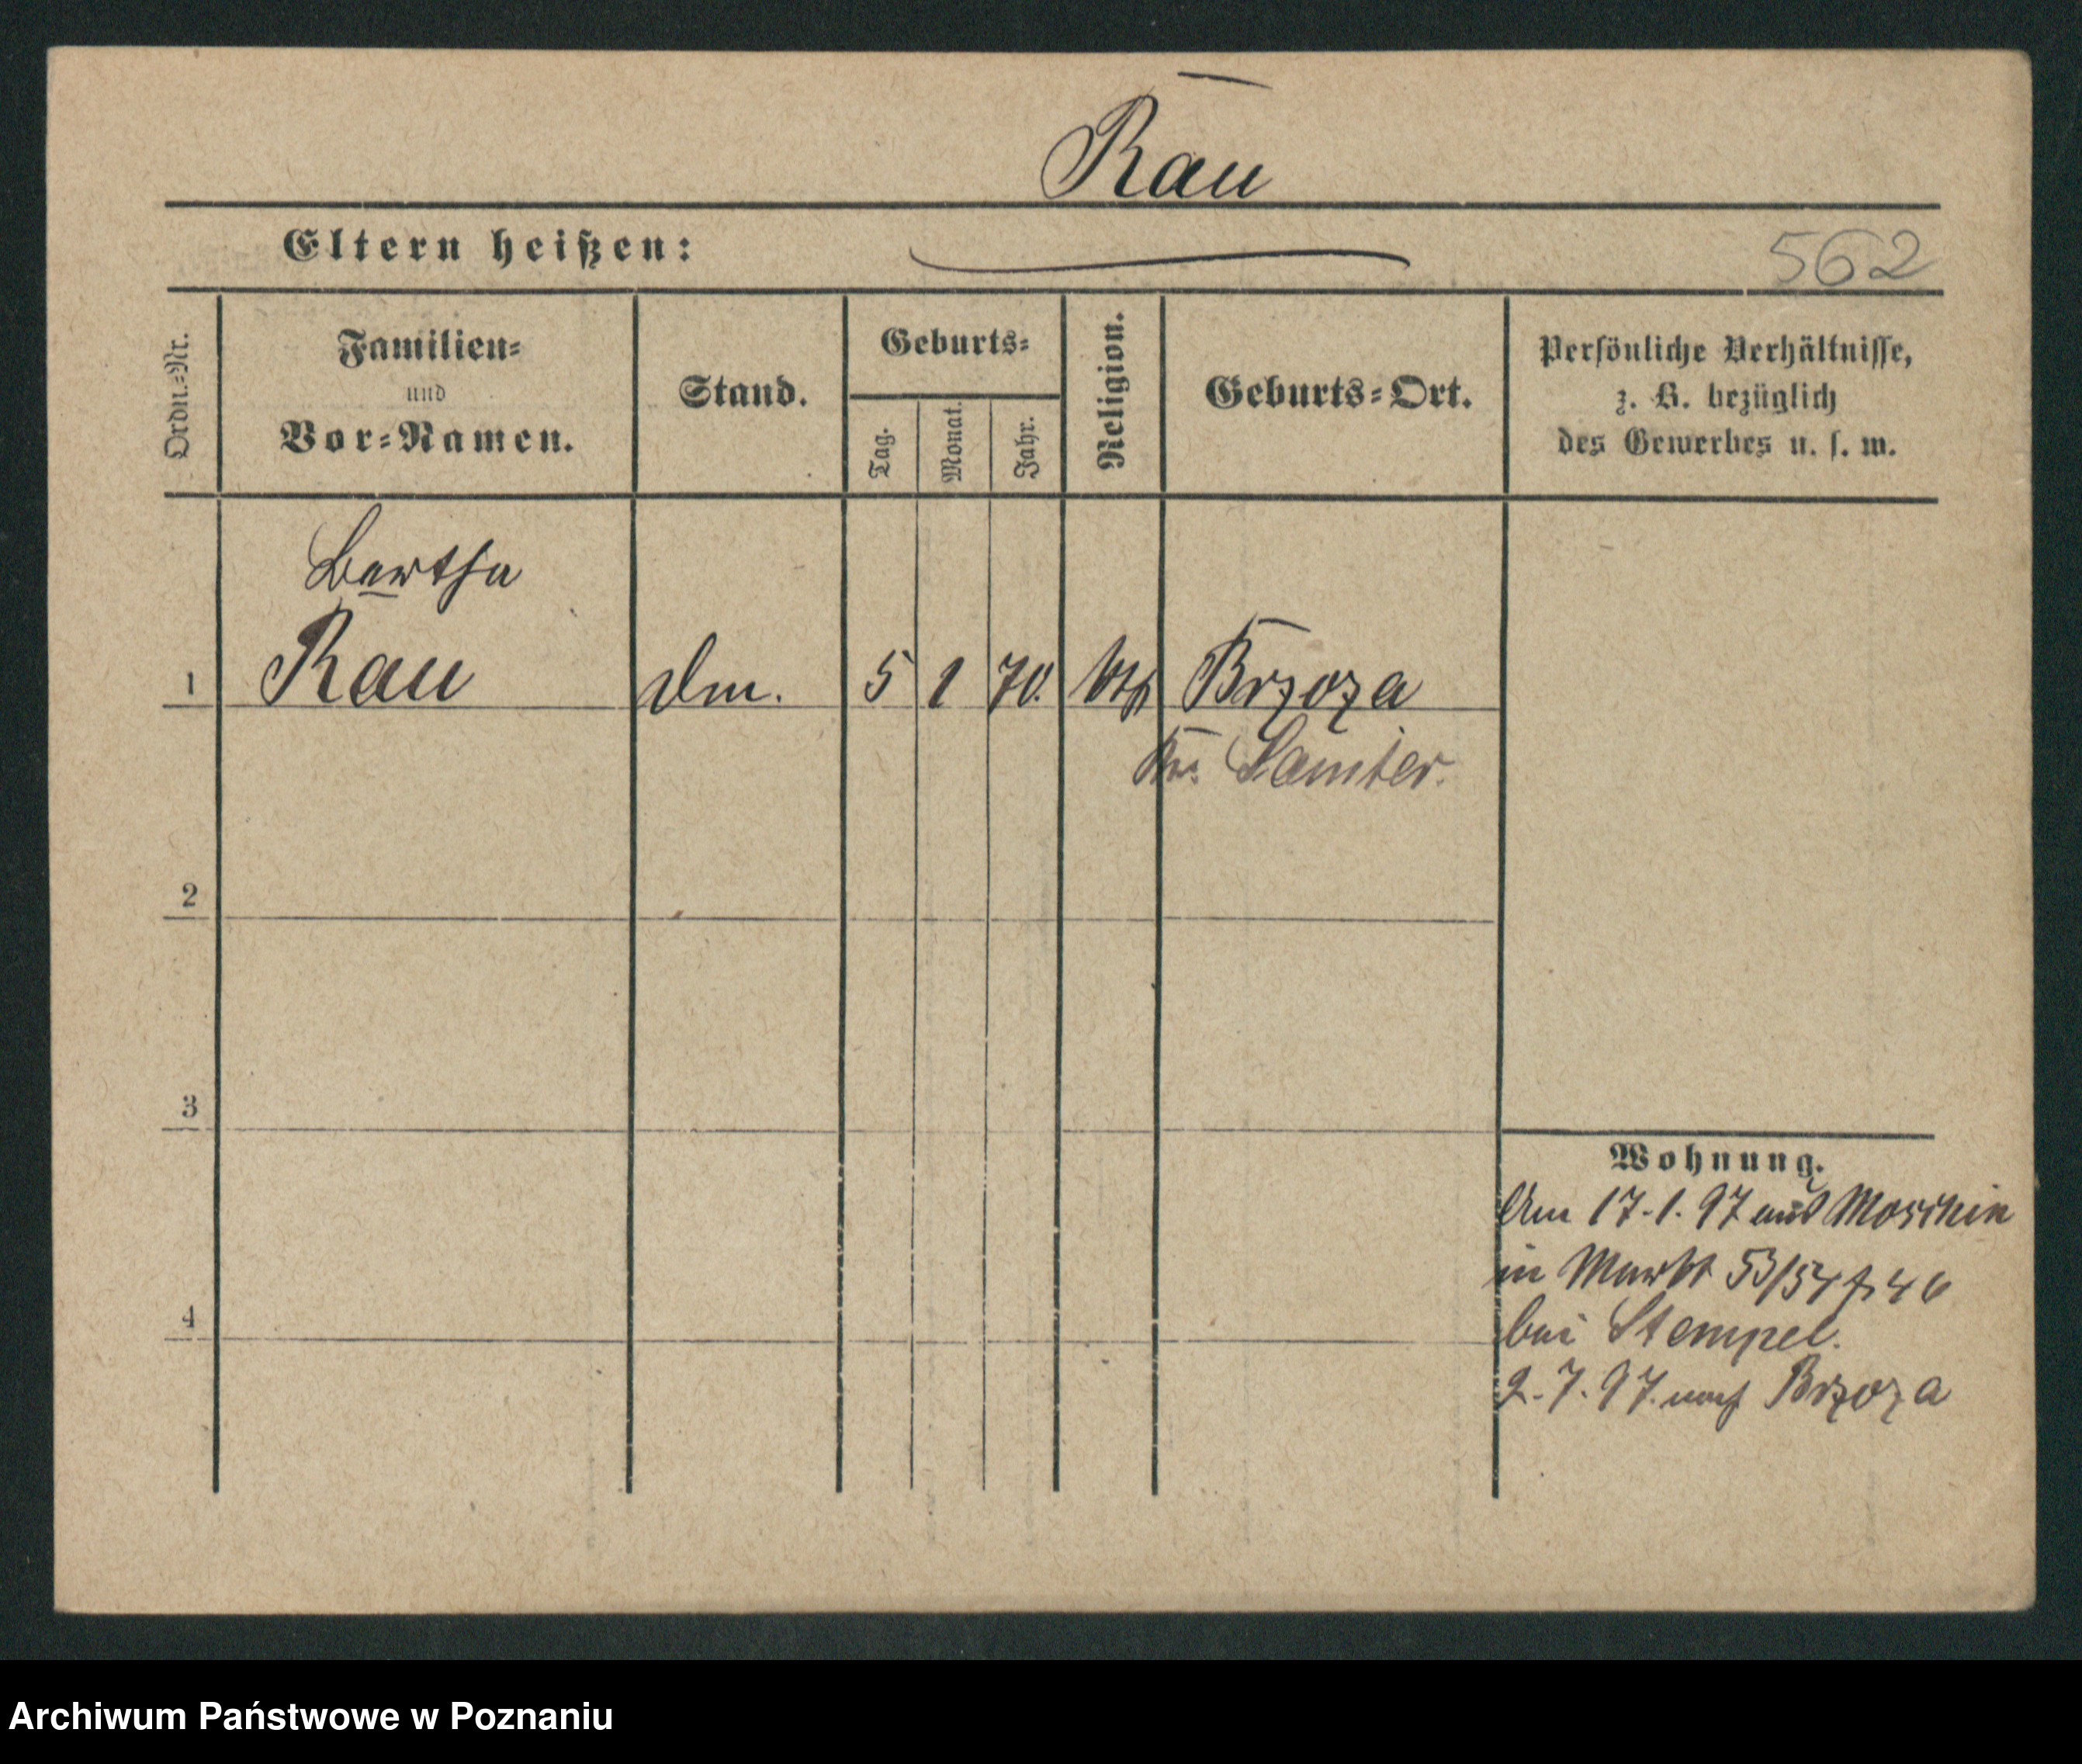 Rau
Eltern heißen:
562
Ordn.-Nr.
Familien-
und
Vor-Namen.
Stand.
Geburts-
Tag.
Monat.
Jahr.
Religion.
Geburts-Ort.
Persönliche Verhältnisse,
z. B. bezüglich
des Gewerbes u. s. w.
Bertha
1 Rau 5 1 70. Brzoza
Kr. Samter.
2
3
4
Wohnung.
Am 17.1.97 aus Moschin
in Markt 53/54 46
bei Stempel.
2.7.97. nach Brzoza
Archiwum Państwowe w Poznaniu